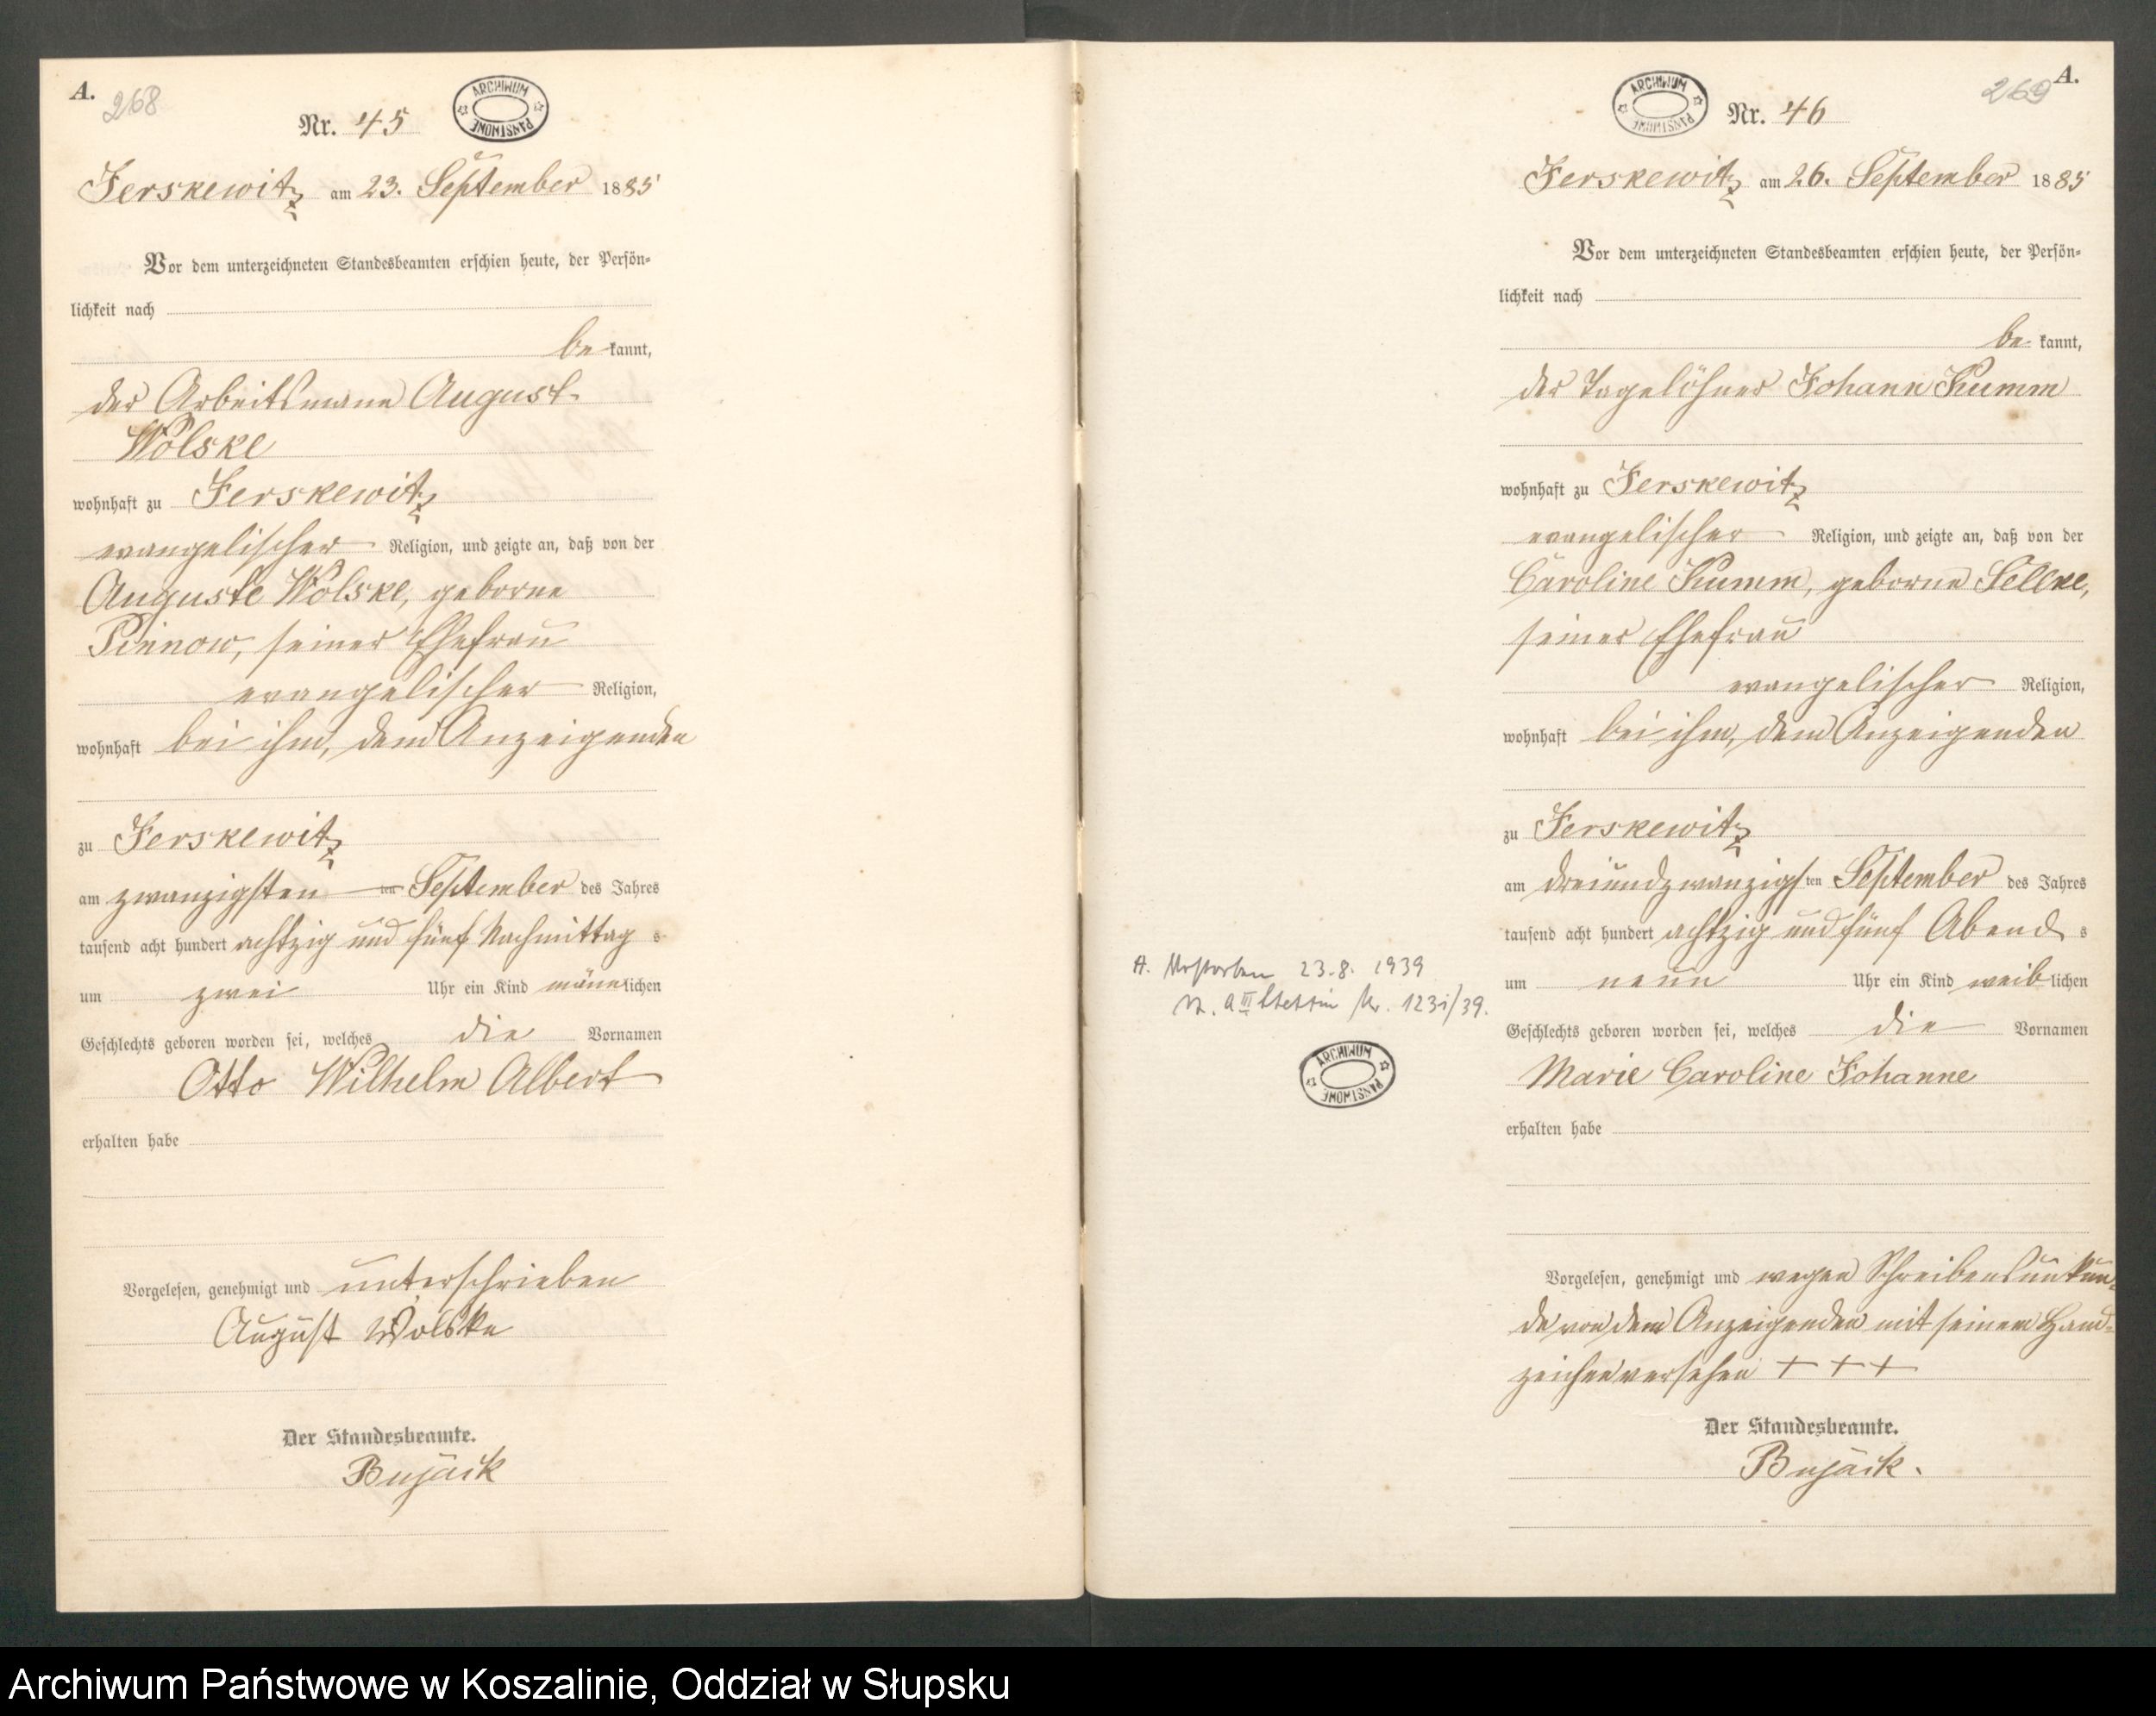 A.
268
Nr. 45
ARCHIWUM PAŃSTWOWE
Jerskewitz am 23. September 1885
Vor dem unterzeichneten Standesbeamten erschien heute, der Persön-
lichkeit nach
be kannt,
der Arbeitsmann August
Wolske
wohnhaft zu Jerskewitz
evangelischer Religion, und zeigte an, daß von der
Auguste Wolske, geborne
Pinnow, seiner Ehefrau
evangelischer Religion,
wohnhaft bei ihm, dem Anzeigenden
zu Jerskewitz
am zwanzigsten ten September des Jahres
tausend acht hundert achtzig und fünf Nachmittag s
um zwei Uhr ein Kind männlichen
Geschlechts geboren worden sei, welches die Vornamen
Otto Wilhelm Albert
erhalten habe
Vorgelesen, genehmigt und unterschrieben
August Wolske
Der Standesbeamte.
Bujack
A.
269
ARCHIWUM PAŃSTWOWE
Nr. 46
Jerskewitz am 26. September 1885
Vor dem unterzeichneten Standesbeamten erschien heute, der Persön-
lichkeit nach
be kannt,
der Tagelöhner Johann Kumm
wohnhaft zu Jerskewitz
evangelischer Religion, und zeigte an, daß von der
Caroline Kumm, geborne Sellke,
seiner Ehefrau
evangelischer Religion,
wohnhaft bei ihm, dem Anzeigenden
zu Jerskewitz
am dreiundzwanzigsten September des Jahres
tausend acht hundert achtzig und fünf Abend s
um neun Uhr ein Kind weiblichen
Geschlechts geboren worden sei, welches die Vornamen
Marie Caroline Johanne
erhalten habe
Vorgelesen, genehmigt und wegen Schreibensunkun-
de von dem Anzeigenden mit seinem Hand-
zeichen versehen + + +
Der Standesbeamte.
Bujack.
A. Verstorben 23.8. 1939
III Stettin Nr. 1231/39.
ARCHIWUM PAŃSTWOWE
Archiwum Państwowe w Koszalinie, Oddział w Słupsku